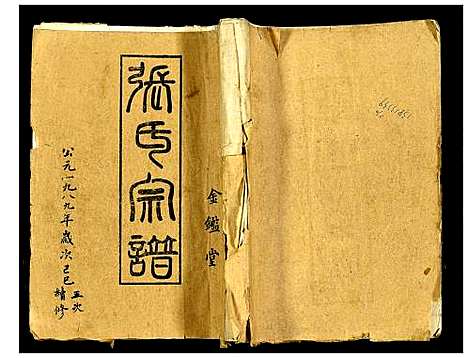 張氏宗譜
金鑑堂
公元一九八九年歲次己巳
五次
續修